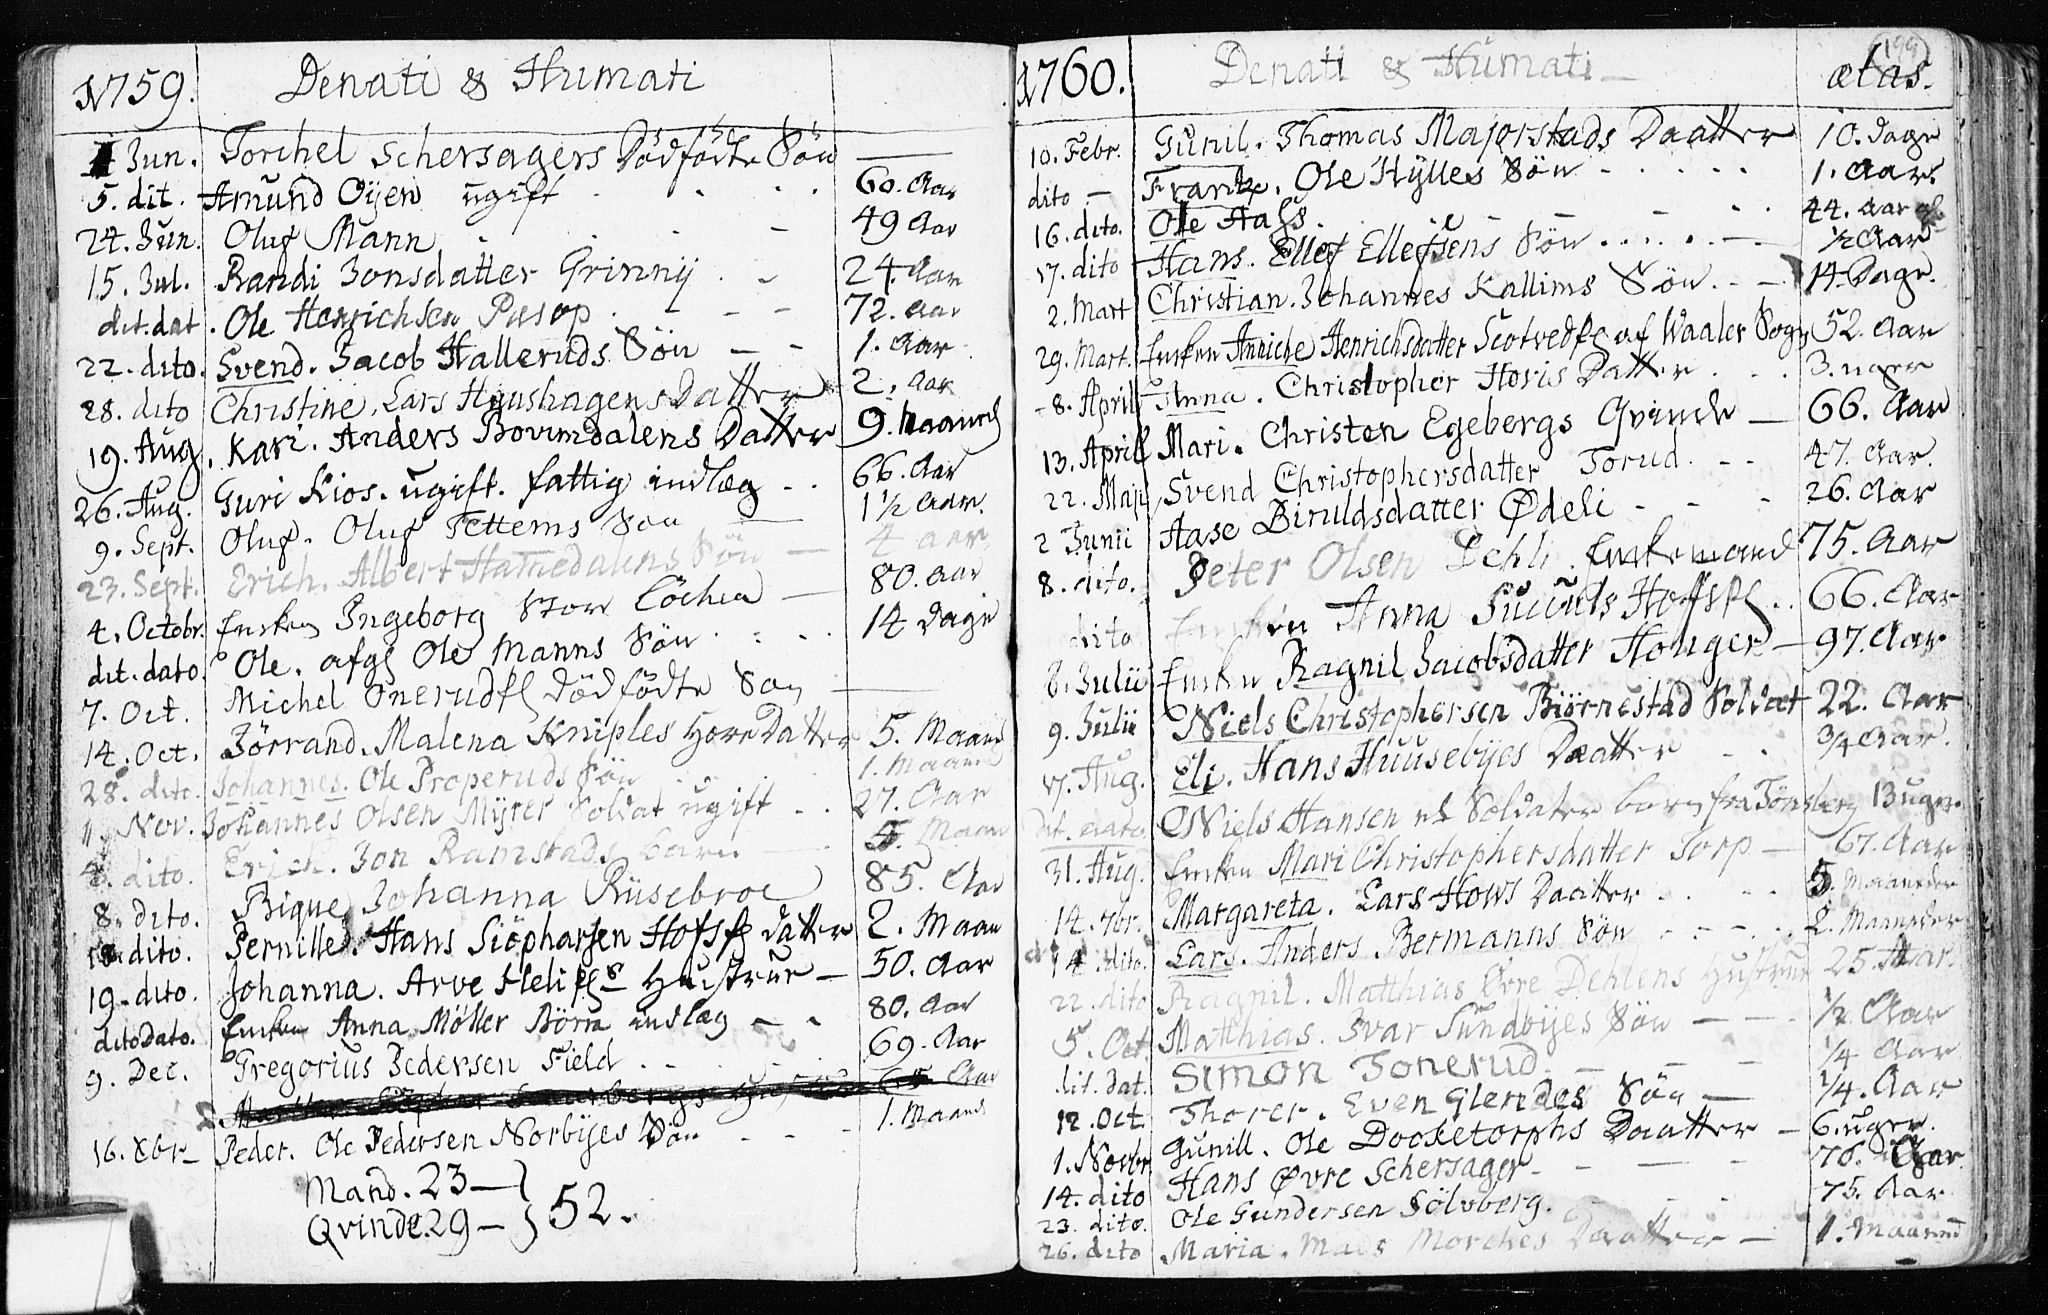 1759. Denati & Humati
Jun. Torchel Schersagers Dödfödte Sön
5. dit. Amund Oijen ugift 60. Aar
24. Jun. Oluf Mann 49 Aar
15. Jul. Randi Jonsdatter Grinnij 24. Aar
dit. dat. Ole Henrichsen Puesop 72. Aar
22. dito. Svend. Jacob Halleruds Sön 1. Aar
28. dito Christine. Lars Hgushagens Datter 2. Aar
19. Aug. Kari. Anders Bovimdalens Datter 9. Maaned
26. Aug. Guri Kios. ugift. fattig indlæg 66. Aar
9. Sept. Oluf. Oluf Tettems Sön 1½ Aar.
23. Sept. Erich. Albert Hamedalens Sön 4 aar
4. Octobr. Enken Ingeborg Stor Löchen 80. Aar
dit. dato. Ole. afg Ole Manns Sön 14 Dage
7. Oct. Michel Onerud dödfödte Sön
14. Oct. Jörrand. Malena Kniples Hore Datter 5. Maaned
28. dito. Johannes. Ole Properuds Sön 1. Maaned
11 Nov. Johannes Olsen Mÿrer Soldat ugift 27. Aar
dito. Erich. Jon Ramstads barn 5. Maan
8. dito. Pigen Johanna Riisebroe 85. Aar
dito. Pernille. Hans Siöpharsen Hofs Datter 2. Maan
19. dito. Johanna. Arve Helis Hustrue 50. Aar
dito Dato. Enken Anna Möller Börn indlæg 80. Aar
9. Dec. Gregorius Pedersen Field 69. Aar
16. Xbr Peder. Ole Pedersen Norbijes Sön 1. Maaned
Mand. 23
Qvinde. 29 52.
199
1760. Denati & Humati ætas.
10. Febr. Gunil. Thomas Majorstads Daatter 10. Dage
dito Frantz. Ole Hÿlles Sön 1. Aar
16. dito. Ole Aas. 44. Aar
17. dito Hans. Ellef Ellefsens Sön ½ Aar
2. Mart Christian. Johannes Kallims Sön 14. Dage.
29. Mart. Enken Anniche Henrichsdatter Scotved af Waaler Sogn 52. Aar
8. April Anna. Christopher Hovis Datter 3. uger
13. April Mari. Christen Egebergs Qvinde 66. Aar
22. Maji Svend Christophersdatter Torud. 47. Aar.
2 Junii Aase Biruldsdatter Ødeli 26. Aar
8. dito. Peter Olsen Dehli. Enkemand 75. Aar
dito Enken Anna Hofs 66. Aar
8. Julii Enken Ragnil Jacobsdatter Houger 97. Aar
9. Julii Niels Christophersen Biörnestad Soldat 22. Aar
17. Aug. Eli. Hans Huusebijes Daatter ¾ Aar.
Dit. dato. Niels Hansen et Soldater barn fra Tönsberg 13 uger.
31. Aug. Enken Mari Christophersdatter Torp 67. Aar
14. 7br. Margareta. Lars Hows Daatter 5. Maaneder
14. dito. Lars. Anders Bermanns Sön 2. Maaneder
22. dito Ragnil. Matthias Øvre Dehlens Hustrue 25. Aar.
5. Oct. Matthias. Ivar Sundbijes Sön ½ Aar
dit. dat. Simon Tonerud. ¼ Aar
12. Oct. Thorer. Even Glendes Sön ¼. Aar
1. Novbr Gunill. Ole Docketorphs Daatter 6. uger.
14. dito Hans Øvre Schersager 76. Aar
23. dito. Ole Gundersen Sölvberg. 75. Aar
26. dito Maria. Mads Morches Daatter 1. Maaned